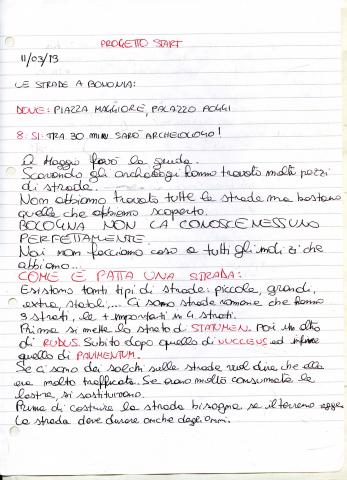 PROGETTO START
11/03/13
LE STRADE A BONONIA:
DOVE: PIAZZA MAGGIORE, PALAZZO POGGI
8. SI: TRA 30 min SARÒ ARCHEOLOGO!
A Maggio farò la guida.
Scavando gli archeologi hanno trovato molti pezzi
di strada.
Non abbiamo trovato tutte le strade ma bastano
quelle che abbiamo scoperto.
BOLOGNA NON LA CONOSCE NESSUNO
PERFETTAMENTE.
Noi non facciamo caso a tutti gli indizi che
abbiamo...
COME È FATTA UNA STRADA:
Esistono tanti tipi di strade: piccole, grandi,
extra, statali,... Ci sono strade romane che hanno
3 strati, le + importanti in 4 strati.
Prima si mette lo strato di STATUMEN. Poi un altro
di RUDUS. Subito dopo quello di NUCLEUS ed infine
quello di PAVIMENTUM.
Se ci sono dei solchi sulle strade vuol dire che ella
era molto trafficata. Se erano molto consumate le
lastre, si sostituivano.
Prima di costruire la strada bisogna se il terreno regge.
La strada deve durare anche degli anni.